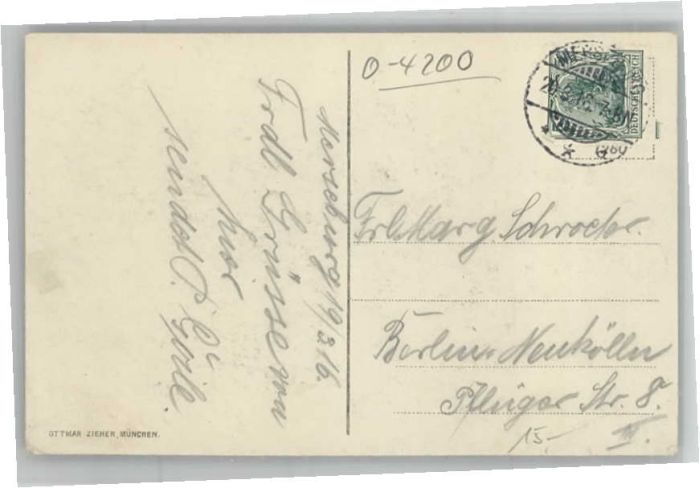 Merseburg 19/2 16.
Frdl. Grüsse von
hier
sendet P.
0-4200
MERSEB
DEUTSCHES REICH
Frl. Marg. Schroeter.
Berlin-Neukölln
Pflüger Str. 8.
II.
15.-
OTTMAR ZIEHER, MÜNCHEN.